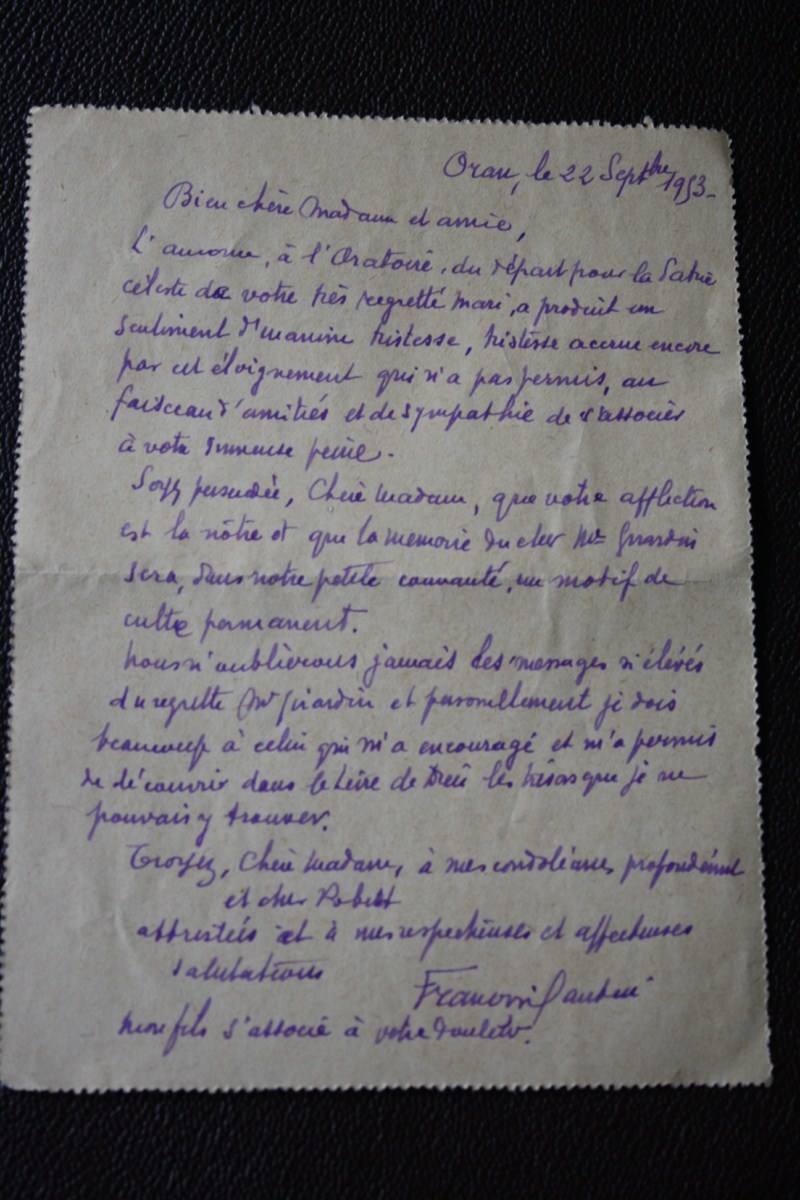 Oran, le 22 Septbre 1953-
Bien chère Madame et amie,
L'annonce, à l'Oratoire, du départ pour la Patrie
céleste de votre très regretté mari, a produit un
sentiment d'unanime tristesse, tristesse accrue encore
par cet éloignement qui n'a pas permis, au
faisceau d'amitiés et de sympathie de s'associer
à votre immense peine.
Soyez persuadée, Chère Madame, que votre affliction
est la nôtre et que la mémoire du cher Mr Girardin
sera, dans notre petite, un motif de
culte permanent.
Nous n'oublierons jamais les messages si élevés
du regretté Mr Girardin et personellement je dois
beaucoup à celui qui m'a encouragé et m'a permis
de découvrir dans le Livre de Dieu les trésors que je ne
pouvais y trouver.
Croyez, Chère Madame, à mes condoléances profondément
et cher Robert
attristées et à mes respectueuses et affectueuses
salutations
Mon fils s'associe à votre douleur.